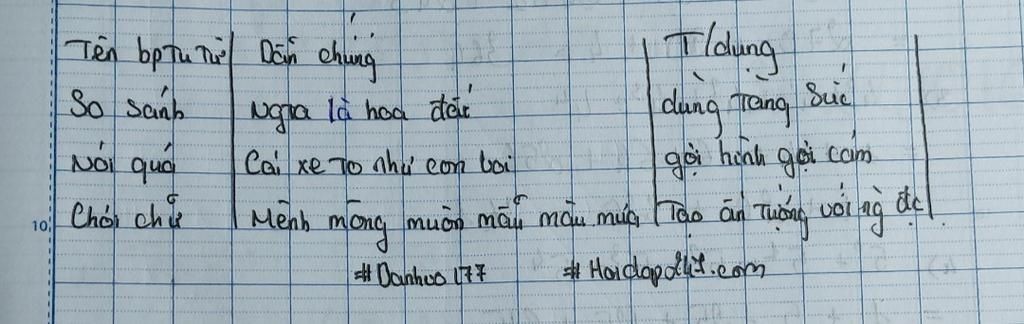 Tên bpTu Từ Dẫn chứng T/dụng
So sánh Ngta là hoa đất dùng Tăng sức
Nói quá Cái xe To như con voi gợi hình gợi cảm
Chơi chữ Mênh mông muôn mẫu màu mưa Tạo ấn Tượng với ng đc
10
#Danhuo177 #Hoidap247.com